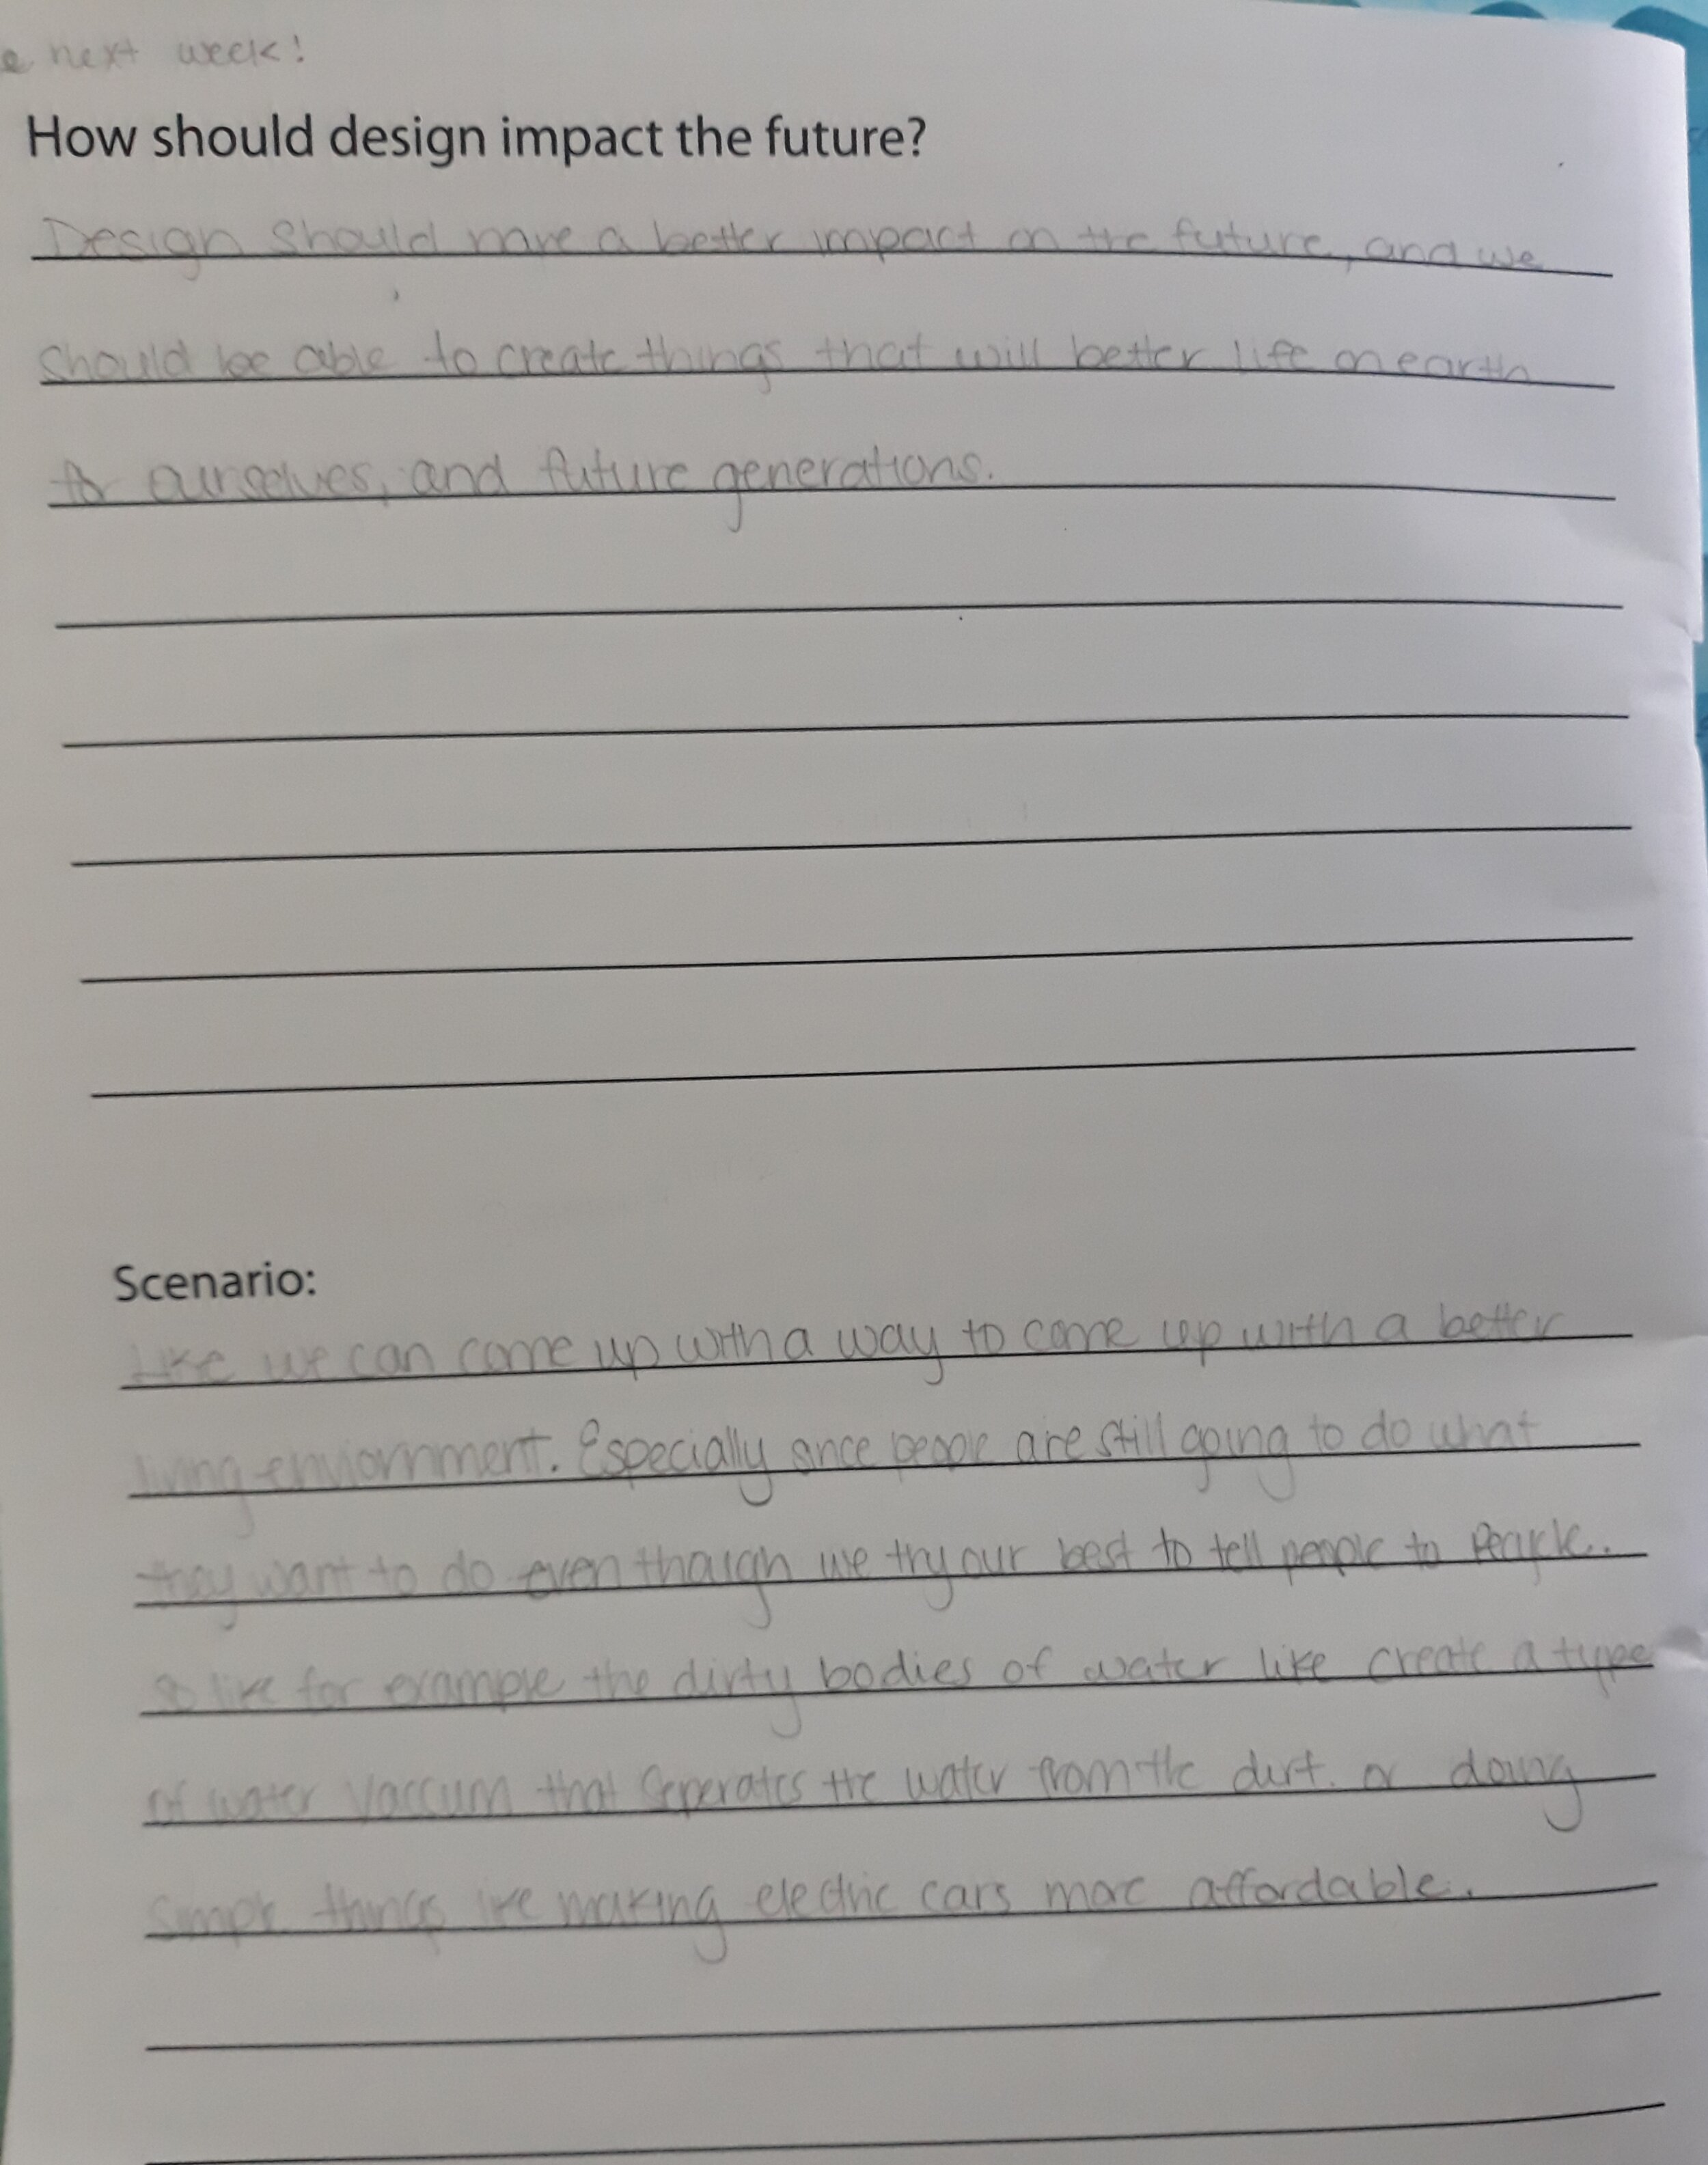 e next week!
How should design impact the future?
Design should have a better impact on the future, and we
should be able to create things that will better life on earth
for ourselves, and future generations.
Scenario:
Like we can come up with a way to come up with a better
living enviornment. Especially since people are still going to do what
they want to do even though we try our best to tell people to Recycle.
so like for example the dirty bodies of water like create a type
of water vaccum that seperates the water from the dirt. or doing
simple things like making electric cars more affordable.